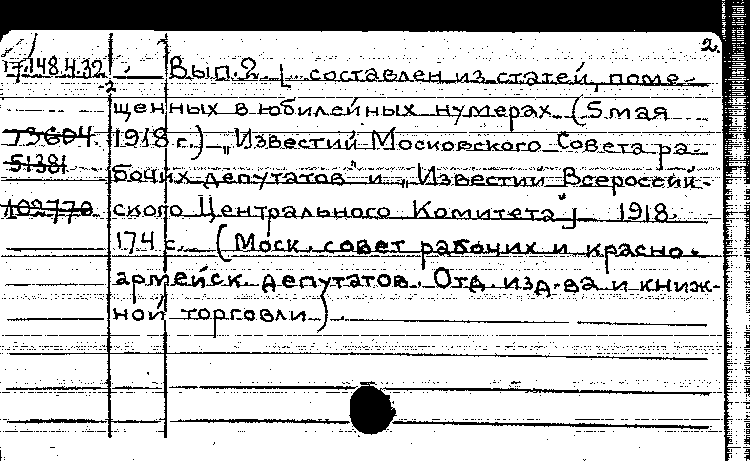 2.
17.148.4.32 Вып. 2. [... составлен из статей, поме-
-2 щенных в юбилейных нумерах (5 мая
73604. 1918 г.) „Известий Московского Совета ра-
51381 бочих депутатов" и „Известий Всероссий-
102770 ского Центрального Комитета"] 1918.
174 с. (Моск. совет рабочих и красно-
армейск. депутатов. Отд. изд-ва и книж-
ной торговли).